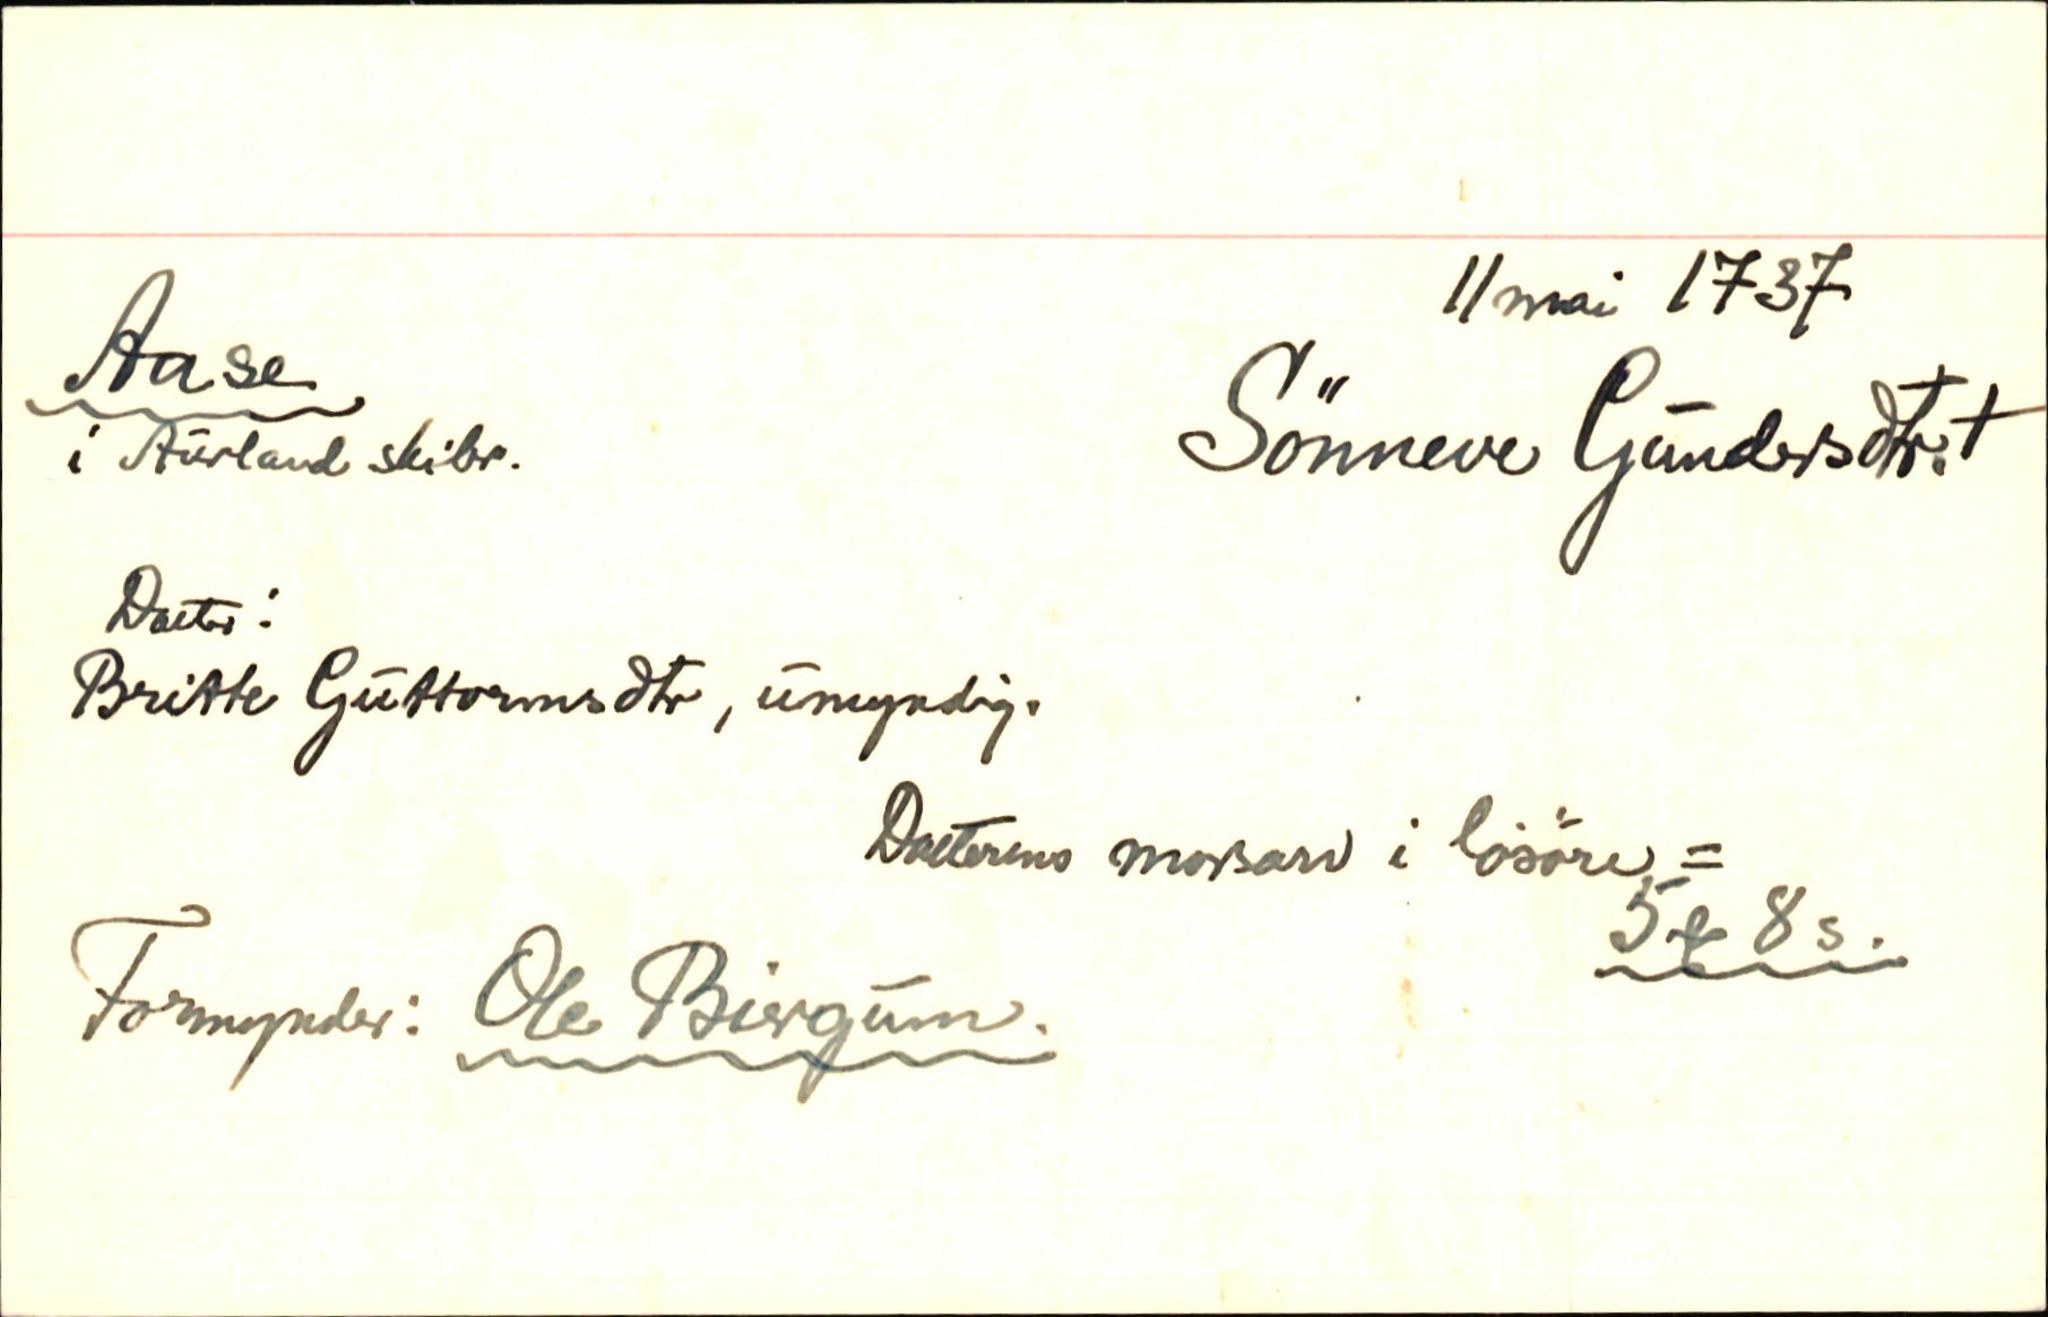 11 mai 1737
Aase
i Aurland skibr.
Sönneve Gundersdtr. †
Datter:
Britte Guttormsdtr, umyndig.
Datterens morsarv i lösöre =
5 8 s.
Formynder: Ole Biergum.